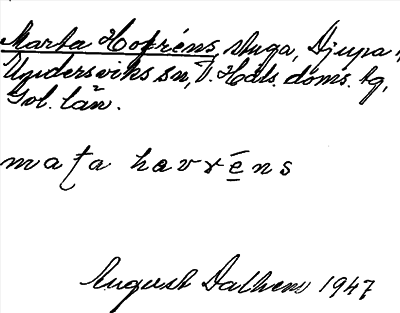 Marta Hofréns, stuga, Djupa,
Undersviks sn, V. Häls. doms. hg,
Gvl. län.
maṭa havrēns
August Dalhem 1947